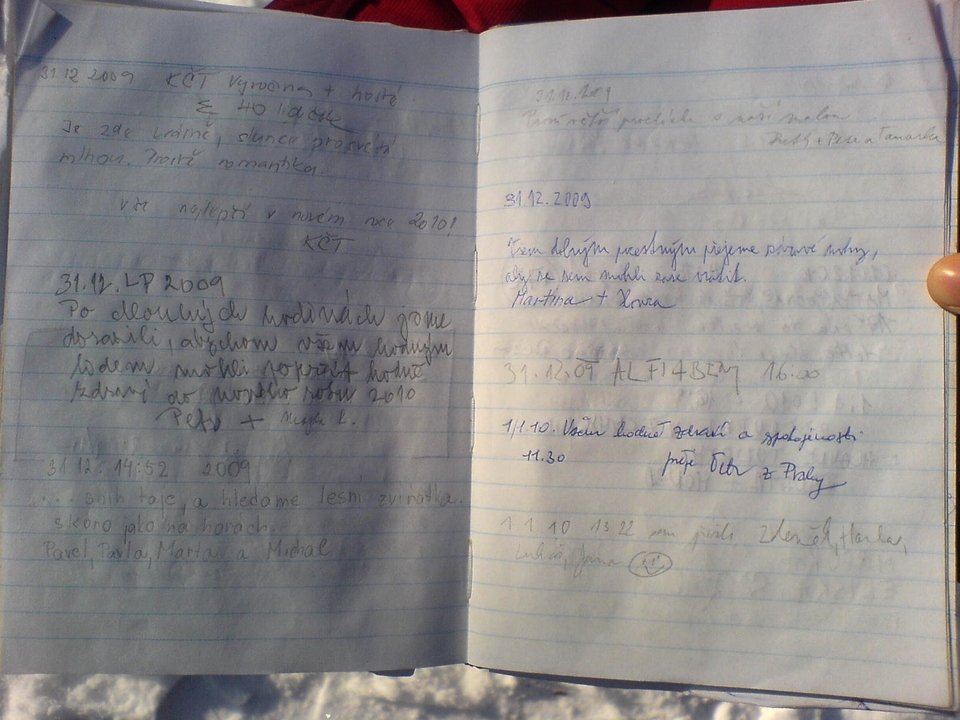 31.12 2009 KČT Výročina + hosté
Σ 40 lidiček
Je zde krásně, slunce prosvětí
mlhou. Prostě romantika.
Vše nejlepší v novém roce 2010!
KČT
31.12. LP 2009
Po dlouhých hodinách jsme
dorazili, abychom všem hodným
lidem mohli popřát hodně
zdraví do nového roku 2010
Petr +
31.12. 14:52 2009
... sníh taje, a hledáme lesní zvířátka
skoro jako na horách.
Pavel, Pavla, Marta a Michal
31.12.2009
31.12.2009
Všem dobrým pocestným přejeme zdravé nohy,
aby se sem mohli zase vrátit.
Martina + Honza
31.12.09 16:00
1.1.10. Všem hodně zdraví a spokojenosti
11.30 přeje Petr z Prahy
1 1 10 13 22 sem přišli Zdeněk, Hanka,
Lukáš, Jana